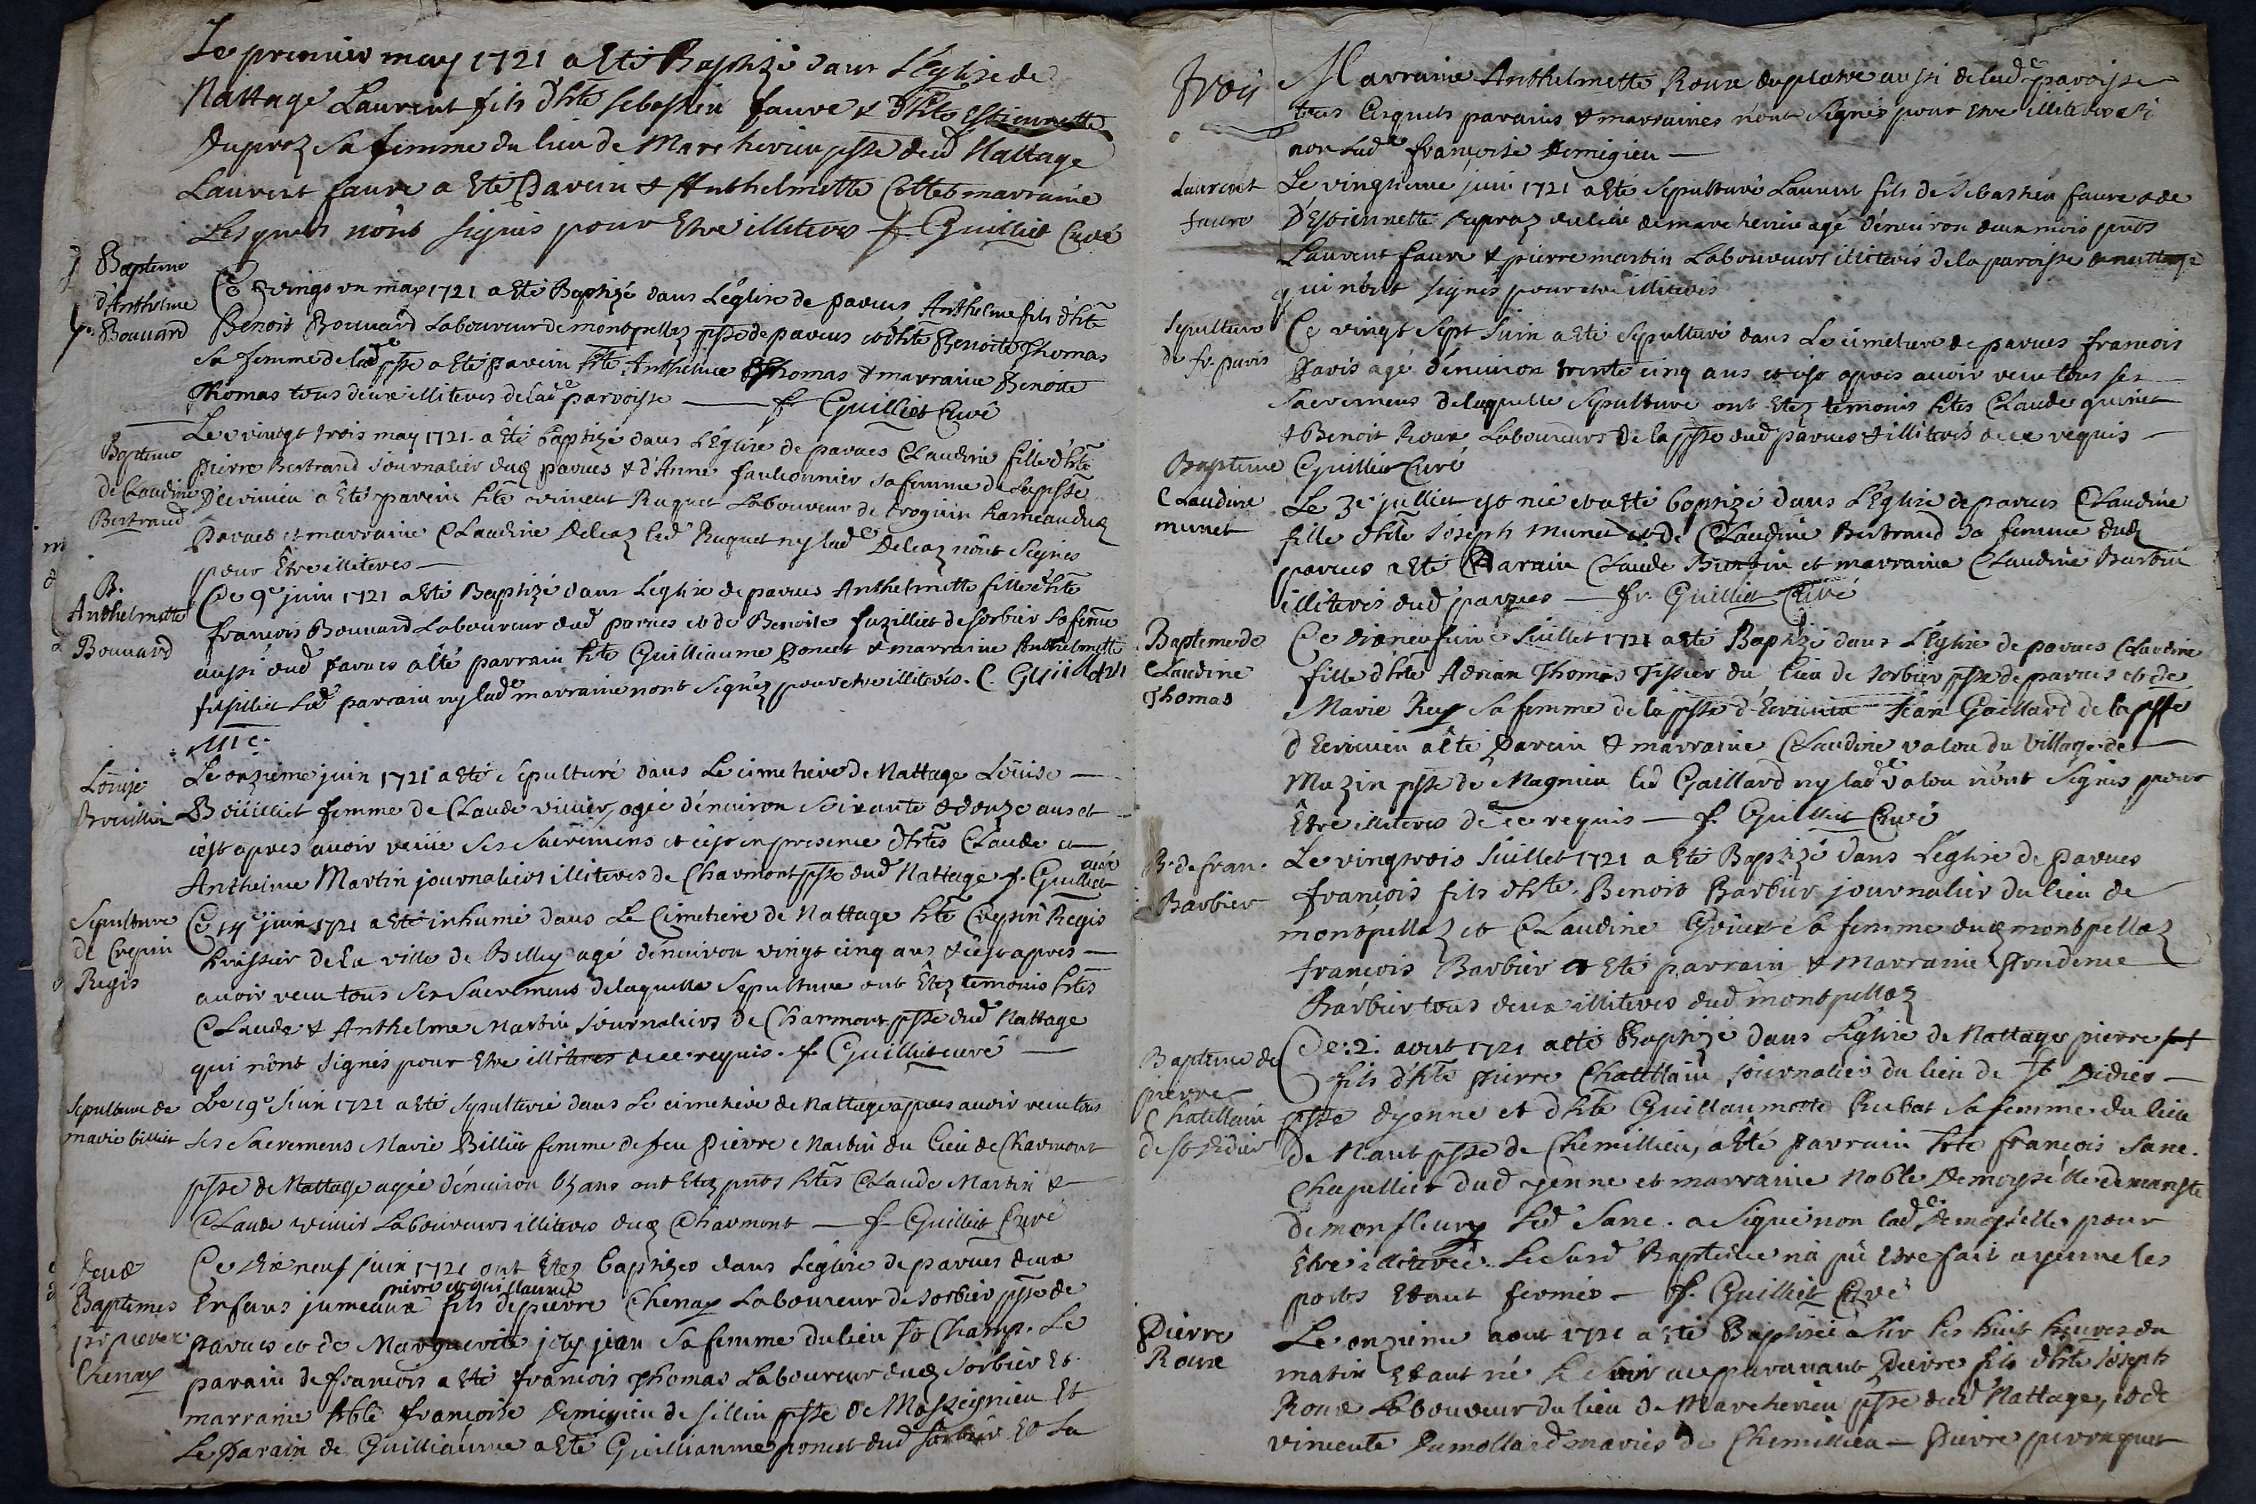 Le premier may 1721 a Eté Baptizé dans L'Eglise de
Nattage Laurent fils d'hte sebastien faure & d'hte Estiennette
Dupraz Sa femme du lieu de Marcherieu psse dud Nattage
Laurent faure a Eté Parein & Anthelmette Collet marraine
Lesquels nont signés pour Etre illiteres f. Guilliet Curé
Bapteme
d'Anthelme
Bouuard
Ce vingt un may 1721 a Eté Baptizé dans L'église de parues Anthelme fils d'hte
Benoit Bouuard Laboureur de montpellaz psse de parues et d'hte Benoite Thomas
Sa femme de lad psse a Eté parein hte Anthelme Thomas & marraine Benoite
Thomas tous deux illiteres de lad parroisse — f. Guilliet Curé
Bapteme
de Claudine
Bertrand
Le vingt trois may 1721 a Eté baptizé dans L'Eglise de parues Claudine fille d'hte
pierre Bertrand Journalier dud parues & d'Anne fauconnier sa femme de la psse
D'Ecrivieu a Eté parein hte vincent Ruquet Laboureur de hameau dud
Parues et marraine Claudine Deleaz led Ruquet ny lad Deleaz nont signés
pour Etre illiteres —
B.
Anthelmette
Bouuard
Ce 9e juin 1721 a Eté Baptizé dans L'église de parues Anthelmette fille d'hte
francois Bouuard Laboureur dud parues et de Benoite fuzilliet de sorbier sa feme
aussi dud parues a Eté parrain hte Guilliaume poncet & marraine Anthelmette
fusilliet Led parrain ny lad marraine nont signéz pour etre illiteres. f. Guilliet
curé
Loüise
Boüilliet
Le onzieme juin 1721 a Eté sepulturé dans Le cimetiere de Nattage Loüise —
Boüilliet femme de Claude viuier, agée d'enuiron soixante & douze ans et
c'est apres auoir receüe ses sacremens et ce en presence d'htes Claude et
Anthelme Martin journaliers illiteres de Charmont psse dud Nattage f. Guilliet
curé
Sepulture
de Crepin
Regis
Ce 14e juin 1721 a Eté inhumé dans Le Cimetiere de Nattage hte Crepin Regis
huissier de La ville de Belley agé d'enuiron vingt cinq ans & c'est apres —
auoir receu tous ses sacremens de laquelle sepulture ont Etez temoins htes
Claude & Anthelme Martin Journaliers de Charmont psse dud Nattage
qui nont signés pour Etre illiteres de ce requis. f. Guilliet curé —
Sepulture de
marie billiet
Le 19e Juin 1721 a Eté sepulturée dans Le cimetiere de Nattage apres auoir receu tous
ses sacremens Marie Billiet femme de feu Pierre Martin du lieu de Charmont
psse de Nattage agée d'enuiron ans ont Etez pnts htes Claude Martin &
Claude viuier Laboureurs illiteres dud Charmont — f. Guilliet Curé
Deux
Baptemes
pr pierre
Chenay
Ce dix neuf Juin 1721 ont Etez baptizes dans L'église de parues deux
pierre et guilliaume
Enfans jumeaux fils de pierre Chenay Laboureur de sorbier psse de
parues et de Marguerite jean Sa femme du lieu St Champ. Le
parain de francois a Eté francois Thomas Laboureur dud sorbier Et
marraine hble francoise Demigieu de sillin psse de Massignieu Et
Le Parain de Guilliaume a Eté Guilliaume poncet dud sorbier Et La
Marraine Anthelmette Roux duplatre aussi de lad parroisse
tous Lesquels parains & marraines nont signés pour Etre illiteres si
non Lad francoise Demigieu —
Laurent
faure
Le vingtieme juin 1721 a Eté sepulturé Laurent fils de sebastien faure & de
D'Estiennette Dupraz du lieu de marcherieu agé d'enuiron deux mois pnts
Laurent faure & pierre martin Laboureurs illiteres de la paroisse de nattage
qui nont signés pour etre illiteres
Sepulture
de fr. paris
Ce vingt sept Juin a Eté sepulturé dans Le cimetiere de parues francois
Paris agé d'enuiron trente cinq ans et c'est apres auoir receu tous ses —
sacremens de laquelle sepulture ont Etez temoins htes Claude guinet
& Benoit Roux Laboureurs de la psse dud parues & illiteres de ce requis —
Guilliet Curé
Bapteme
Claudine
munet
Le 3e juilliet est née et a Eté baptizé dans L'Eglise de parues Claudine
fille d'hte Joseph munet et de Claudine Bertrand sa femme dud
parues a Eté Parain Claude Burtin et marraine Claudine Burtin
illiteres dud parues — fr. Guilliet Curé
Bapteme de
Claudine
Thomas
Ce dixneufuieme Juillet 1721 a Eté Baptizé dans L'Eglise de parues Claudine
fille d'hte Adrian Thomas Tissier du lieu de sorbier psse de parues et de
Marie Rey sa femme de la psse d'Ecrivieu Jean Gaillard de la psse
d'Ecrivieu a Eté Parein & marraine Claudine valou du village de —
Muzin psse de Magnieu led Gaillard ny lad valou nont signés pour
Etre illiteres de ce requis — f. Guilliet Curé
B. de fran.
Barbier
Le vingtrois Juillet 1721 a Eté Baptizé dans L'eglise de parues
francois fils d'hte Benoit Barbier journalier du lieu de
montpellaz et Claudine Guinet sa femme dud montpellaz
francois Barbier a Eté parrain & Marraine Prudence
Barbier tous deux illiteres dud montpellaz
Bapteme de
pierre
Chatillain
de st didier
Ce .2. aout 1721 a Eté Baptizé dans L'église de Nattages pierre
fils d'hte pierre Chatillain Journalier du lieu de st Didier —
psse d'yenne et d'hte Guillaumette Rubat sa femme du lieu
de Nant psse de Chemillieu, a Eté parrain hte francois Jane.
Chapulliet dud yenne et marraine Noble Demoyselle
de monfleury led Jane. a signé non lad Demoyselle pour
Etre illiterée. Le susd Bapteme n'a pû Etre fait a yenne les
portes Etant fermés — f. Guilliet Curé
Pierre
Roux
Le onzieme aout 1721 a Eté Baptizé les huit heures du
matin Etant né le soir auparauant Pierre fils d'hte Joseph
Roux Laboureur du lieu de Marcherieu psse dud Nattage, et de
vincente Dumollard mariés de Chemillieu — Pierre perruquet